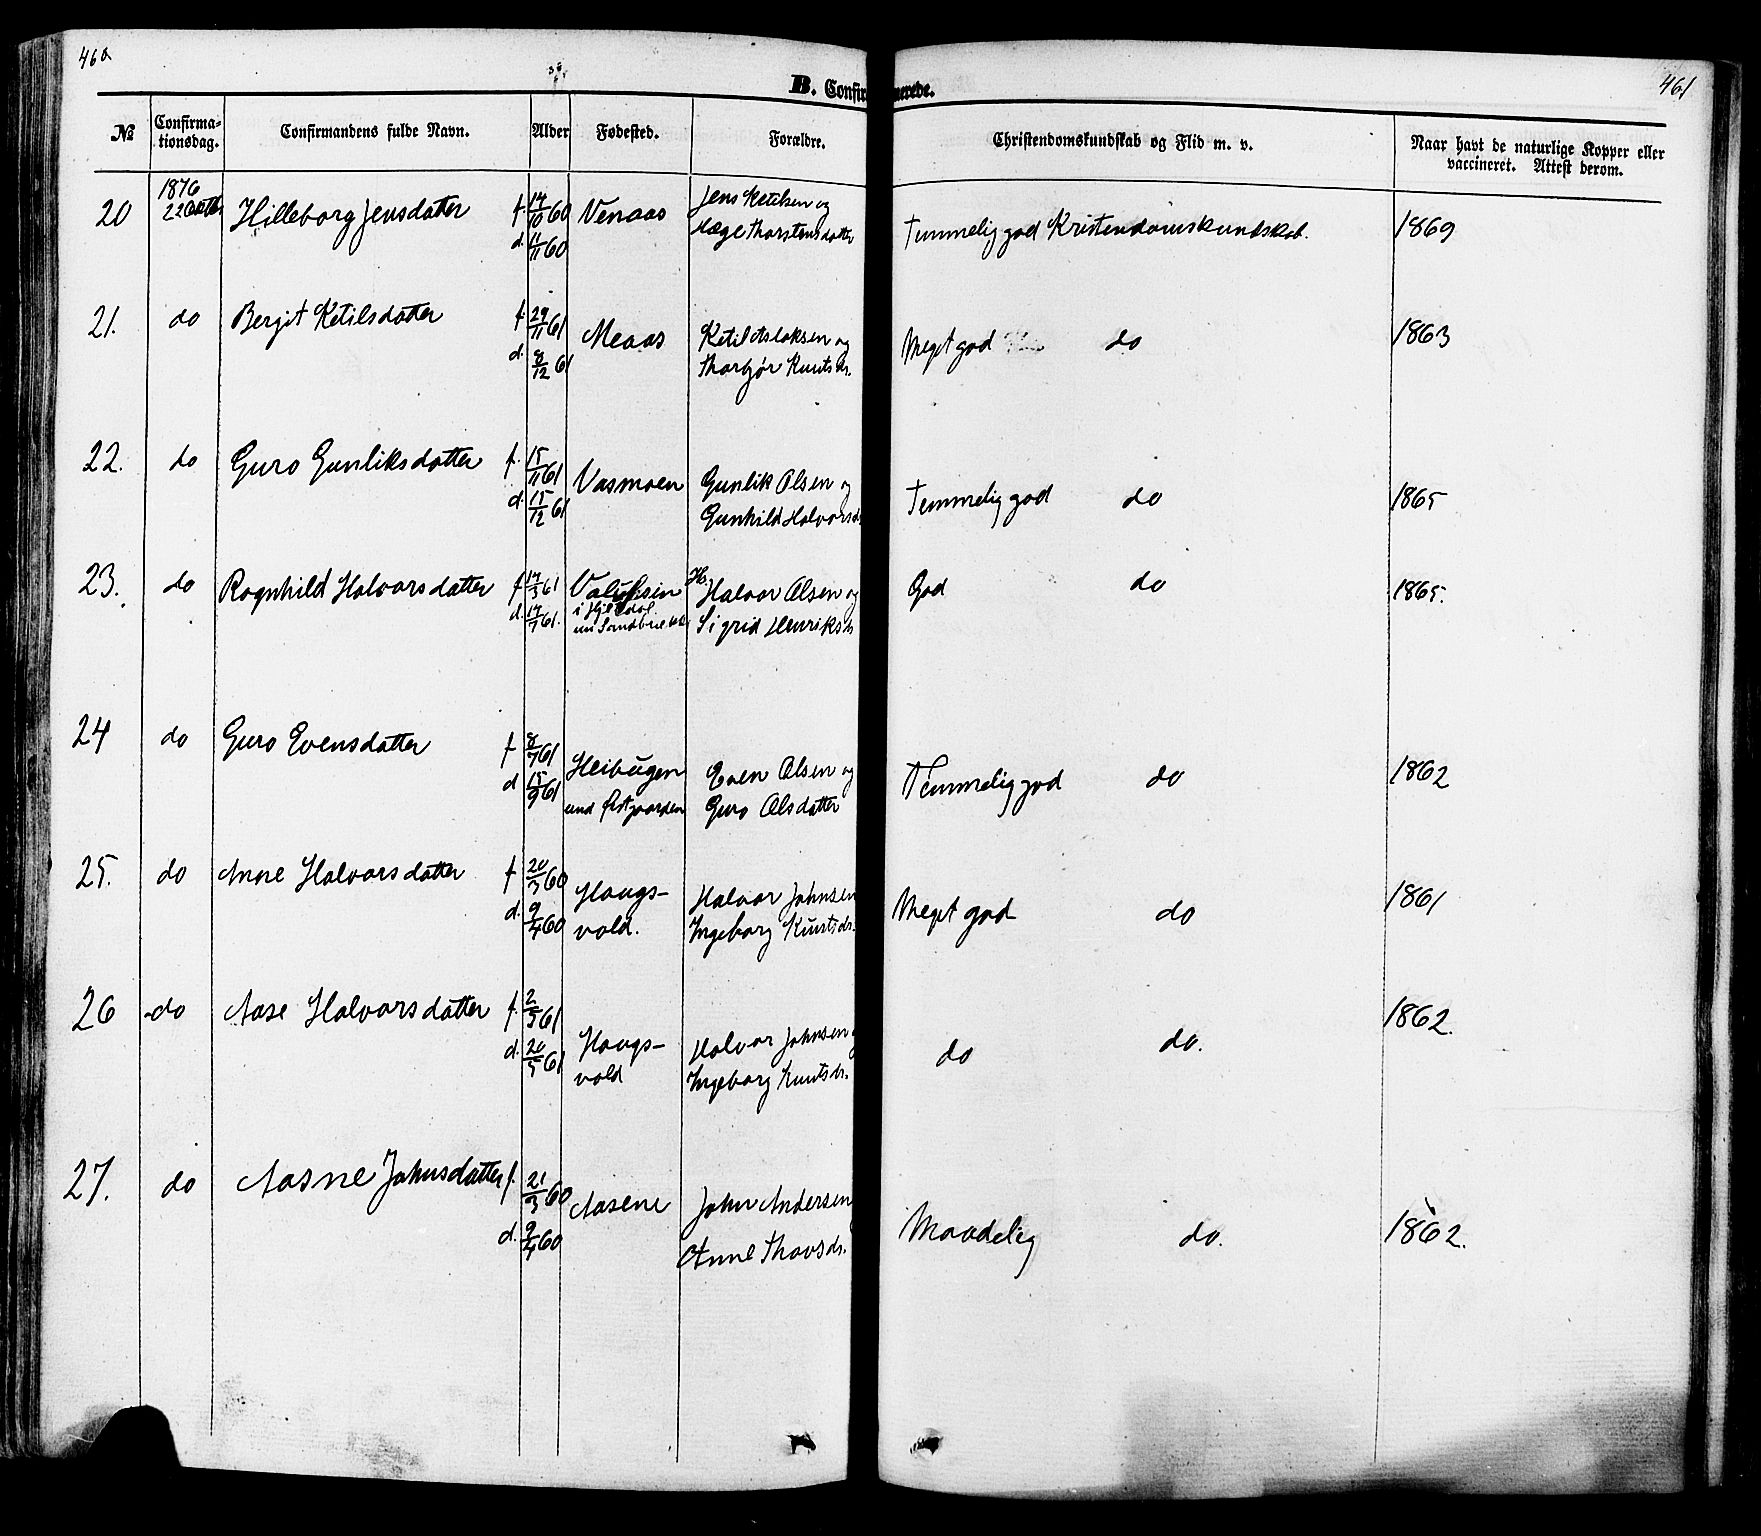 460
461
B. Confirmerede.
№
Confirma-
tionsdag.
Confirmandens fulde Navn.
Alder
Fødested.
Forældre.
Christendomskundskab og Flid m. v.
Naar havt de naturlige Kopper eller
vaccineret. Attest derom.
1876
20 22 Hilleborg Jensdatter f 14/10 60 Venaas Jens Ketilsen og Temmelig god Kristendomskundskab. 1869
d. 11/11 60 Hæge Thorstensdatter
21. do Bergit Ketilsdatter f. 29/11 61 Meaas Ketil Aslaksen og Meget god do 1863
d. 8/12 61 Thorbjør Knuts dr.
22. do Guro Gunliksdatter f. 15/11 61 Vasmoen Gunlik Olsen og Temmelig god do 1865
d. 15/12 61 Gunhild Halvorsd
23. do Ragnhild Halvorsdatter f 14/3 61 H. Halvor Olsen og God do 1865.
d. 14/7 61. i Hjerdal Sigrid Henriks
24 do Guro Evensdatter f 8/7 61 Heibugen Even Olsen og Temmelig god do 1862
d 15/9 61 und Østgaarden Guro Olsdatter
25. do Anne Halvorsdatter f 20/3 60 Haugs- Halvor Johnsen Meget god do 1861
d. 9/4 60 vold. Ingeborg Knutsdr.
26 do Aase Halvorsdatter f. 2/3 61 Haugs- Halvor Johnsen do do. 1862.
d. 20/5 61 vold Ingeborg Knutsdr.
27. do Aasne Johnsdatter f. 21/3 60 Aasene John Andersen Maadelig do. 1862.
d. 9/4 60 Anne Thovsdr.